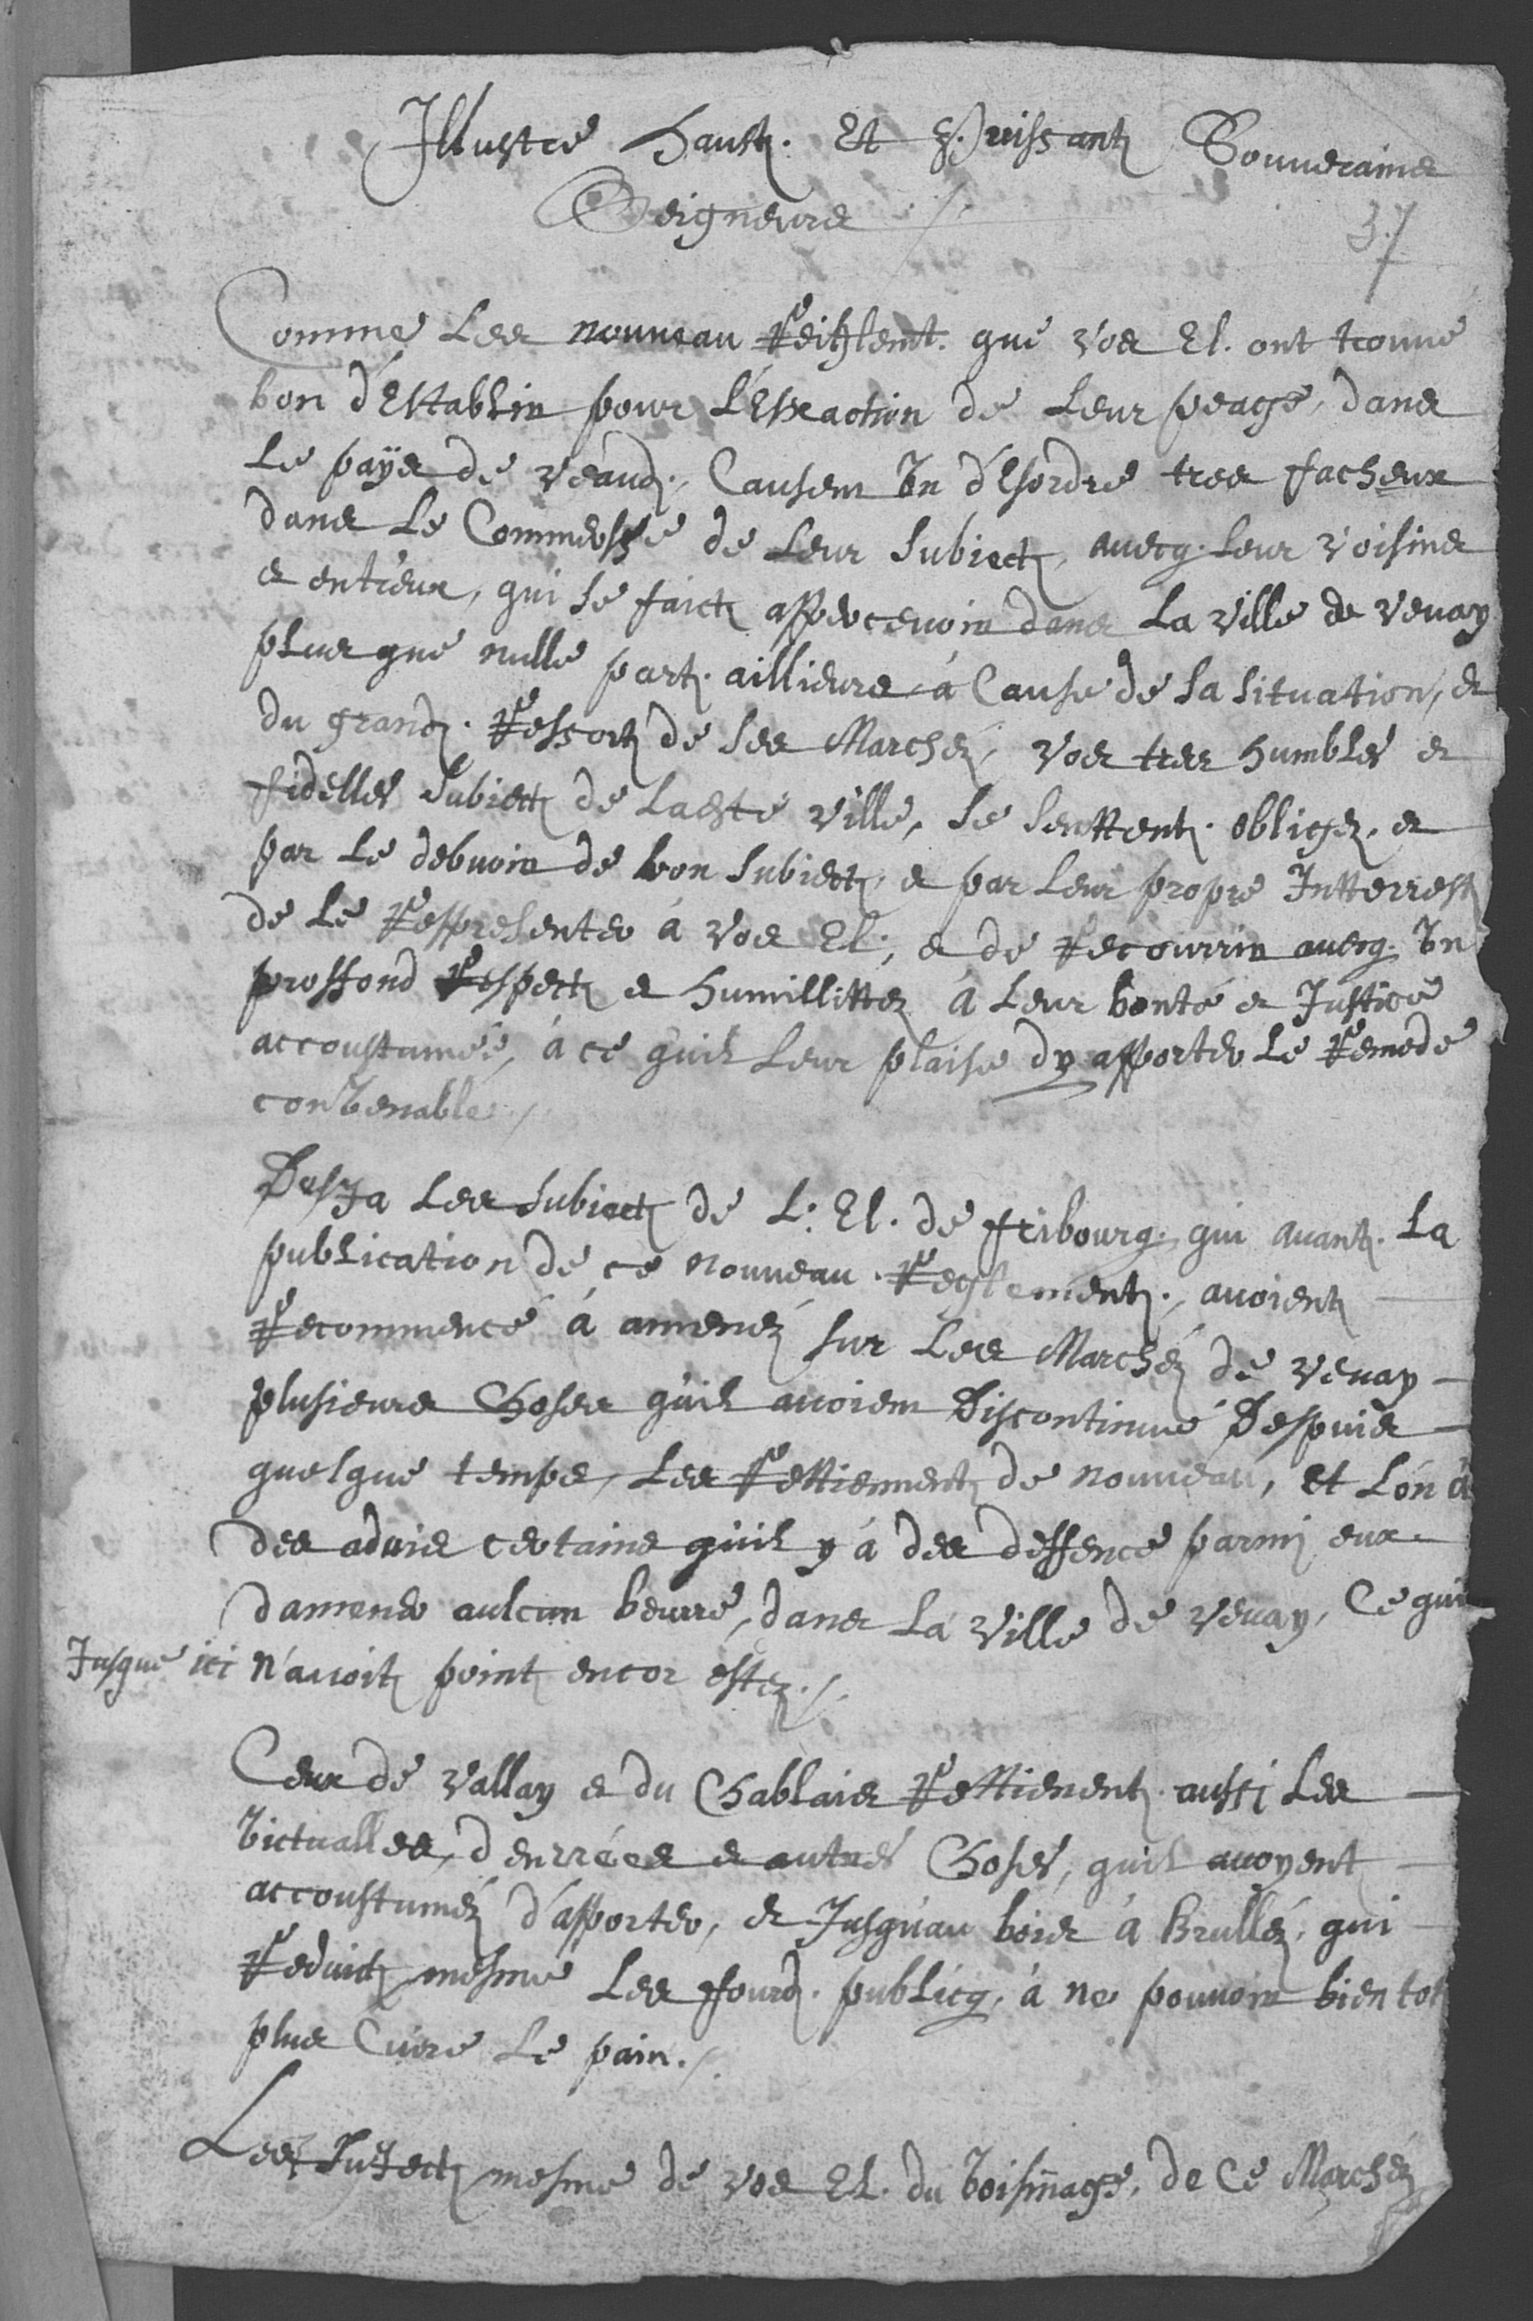 Illustre Hauts. Et Puissants Souuerains
Seigneurs /.
37
Comme Les nouueau Reiglemt. que vos El. ont trouué
bon d'Establir pour L'Exaction de Leur peage, dans
Le païs de veaud., Causent Un d'Esordre tres facheux
dans Le Commersse de Leur Subiects, auecq. Leur voisins
et entr'eux, qui se faict appercevoir dans La Ville de Veuay
plus que nulle part. aillieurs à Cause de sa situation, et
du grand. Ressort de ses Marchéz, vos tres humbles et
fidelles Subiects de Ladste ville, se senttent. obligez, et
par Le debuoir de bon Subiects, et par Leur propre Intterrest
de Le Respresenter à vos El., et de Recourrir auecq. Un
proffond Respect et humillittez à Leur bonté et Justice
accoustumée, à ce quil Leur plaise dy apporter Le Remede
conVenable /.
DesJa Les Subiects de L. El. de fribourg. qui auant. La
publication de ce nouueau Reglement., auoient
Recommencé à amenéz sur Les Marchéz de Veuay
plusieurs Choses quil auoient Discontinué Despuis
quelque temps, Les Rettiennent de nouueau, et L'on à
des aduis certains quil y à des deffence parmi eux
damener aulcun beurre, dans La Ville de Veuay, Ce qui
Jusque ici n'auoit point encor estez./.
Ceux de Vallay et du Chablais Rettienent. aussi Les
Victualles, denrrées et autres Choses, quil auoyent
accoustuméz d'apporter, et Jusqu'au bois à Brulléz, qui
Reduict mesme Les ffourd. publicq, à ne pouuoir bien tot
plus Cuire Le pain./.
Les SuJects mesme de vos El. du Voisinnage, de Ce Marchéz